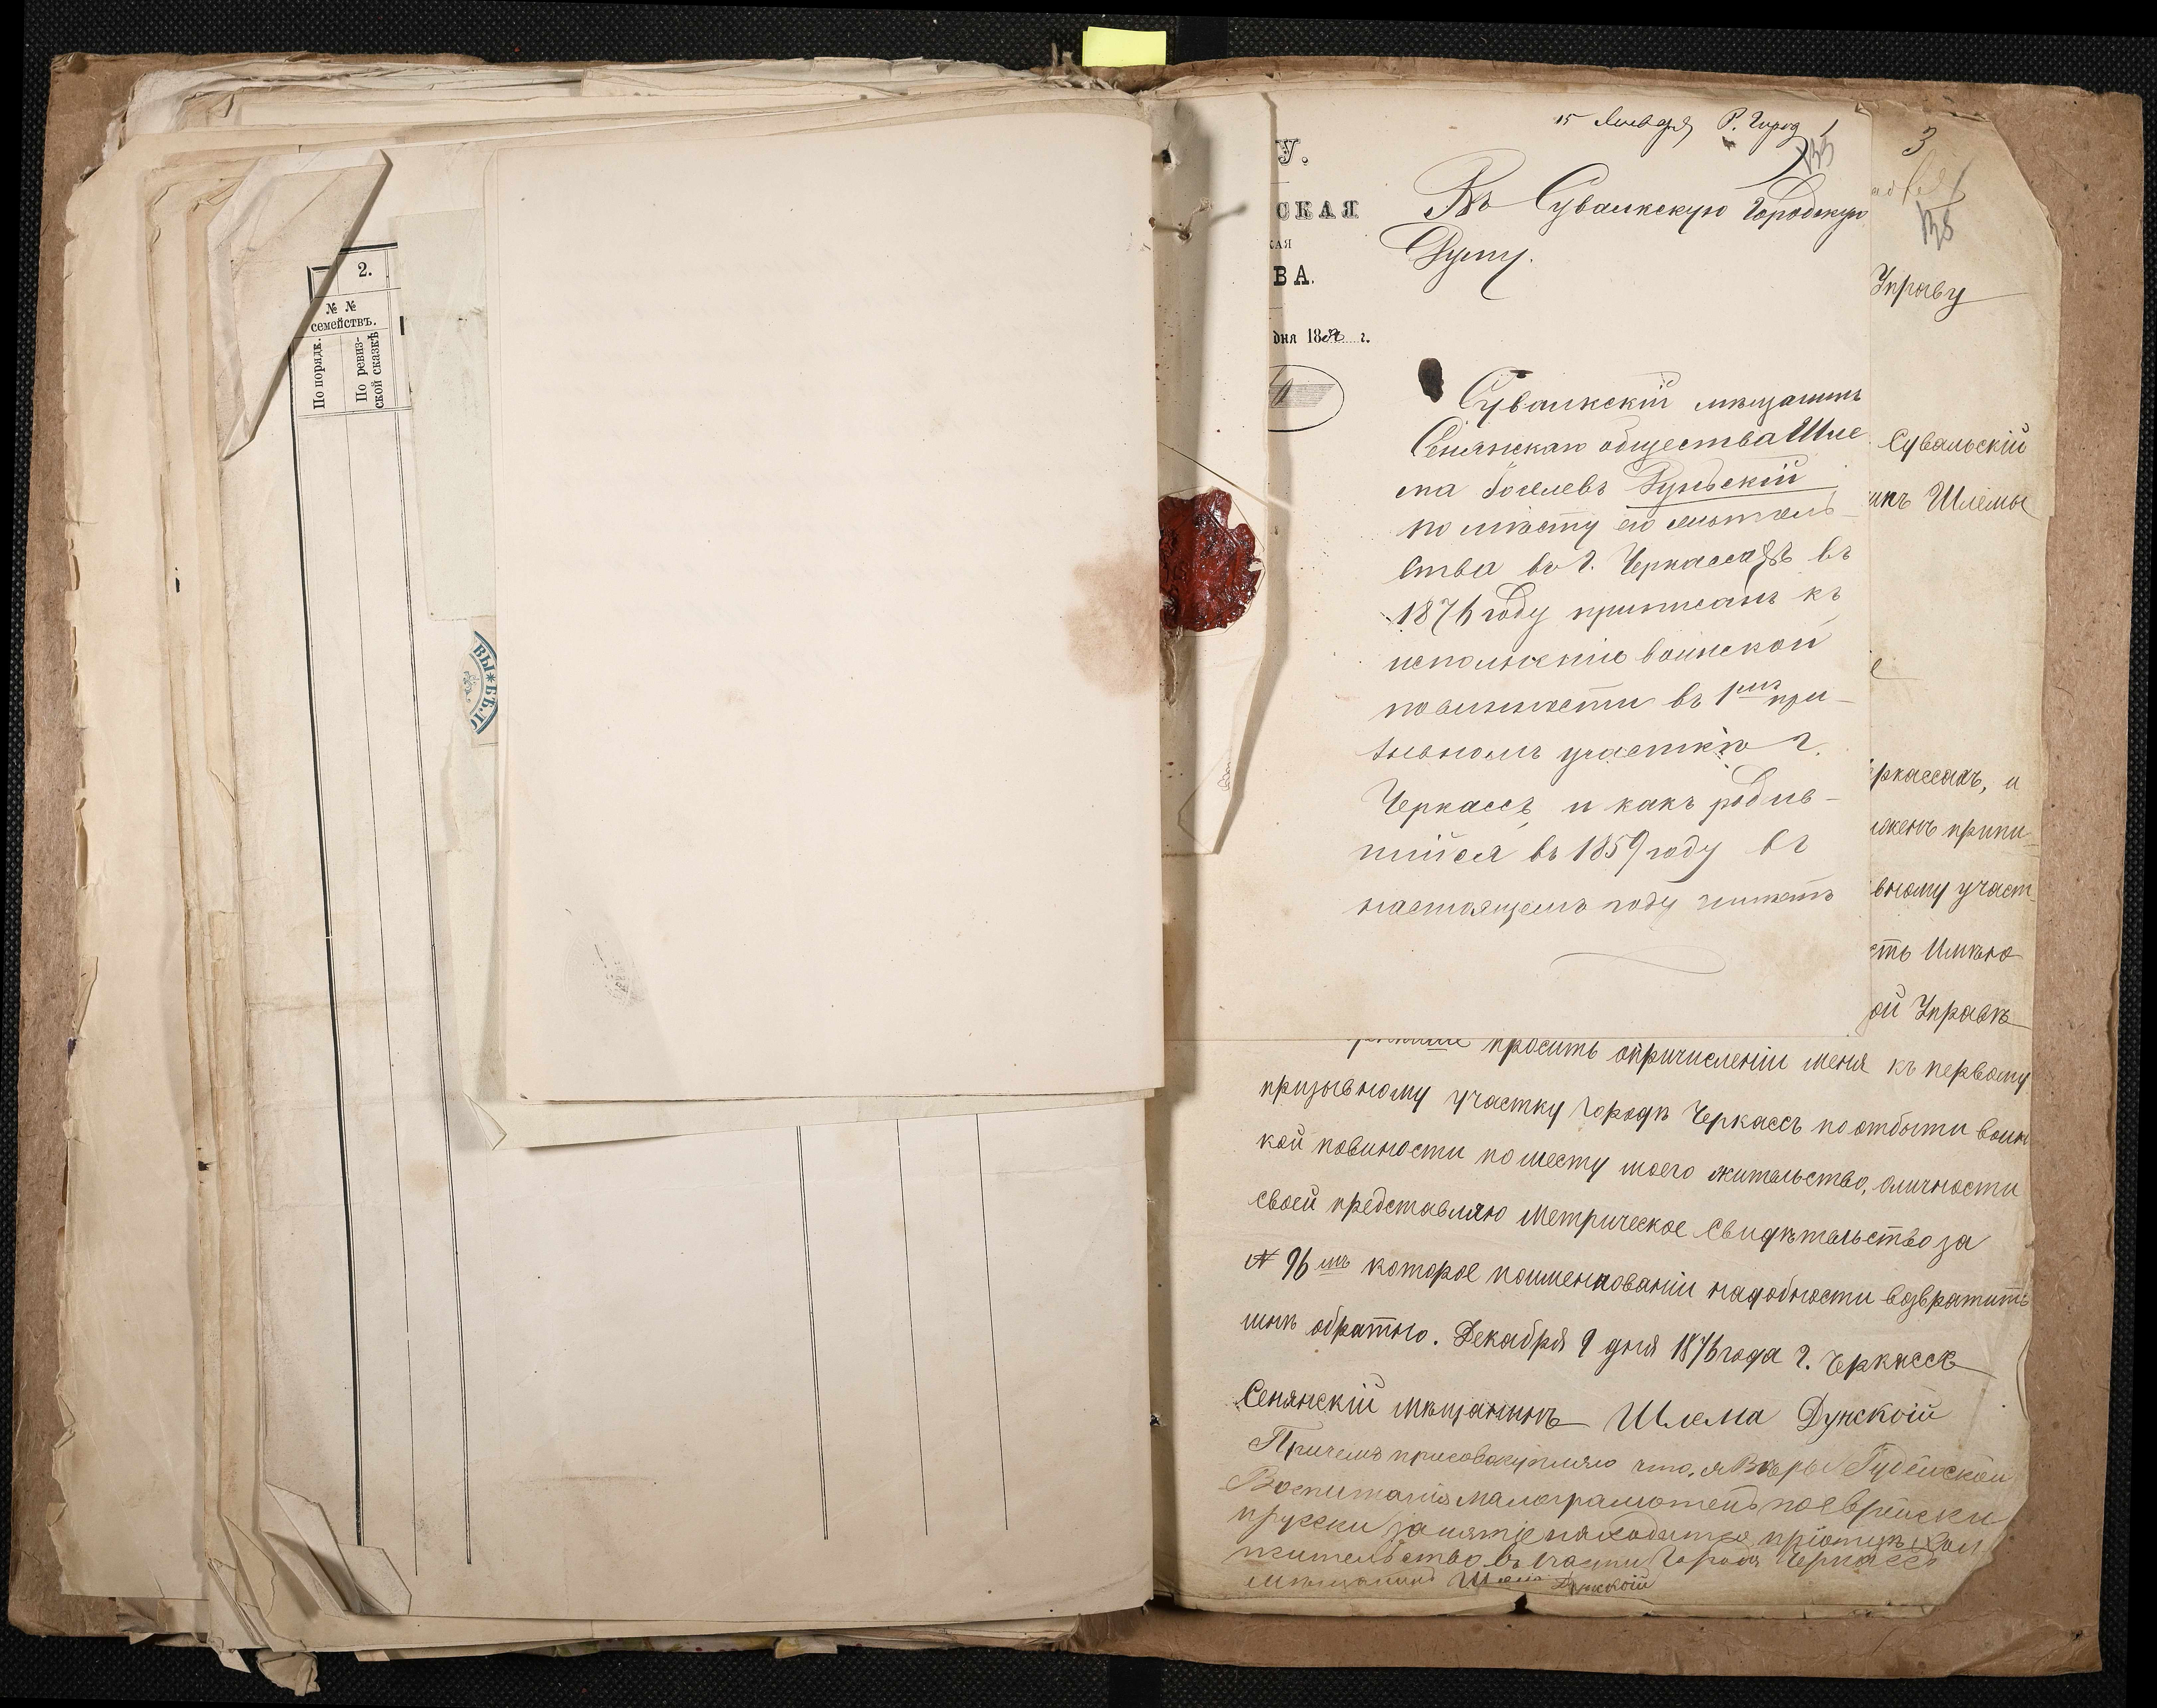 2.
№ №
семействъ.
По порядк.
По ревиз-
ской сказкѣ
ВЫ*БѢЛ
У.
СКАЯ
КАЯ
ВА.
дня 18 г.
15 Января Р. Город 1
133
Въ Сувалкскую Городскую
Думу.
Сувалкскій мѣщанинъ
Сенянскаго общества Шле
ма Іоселевъ Дунскій
по мѣсту его житель-
ства въ г. Черкассахъ въ
1876 году приписанъ къ
исполненію воинской
повинности въ 1мъ при-
зывномъ участкѣ г.
Черкассъ, и какъ родив-
шійся въ 1859 году въ
настоящемъ году
3
138
Управу
Сувальскій
инъ Шлемы
еркассахъ, и
лженъ припи
вному участ
сть Имѣю
ой Управѣ
просить опричисленіи меня къ первому
призывному участку городъ Черкассъ поотбыти воин
кой повиности поместу моего жительство, оличности
своей представляю Метрическое Свидѣтельство за
№ 96 мъ которое поименованіи надобности возвратить
мнѣ обратно. Декабря 9 дня 1876 года г. Черкассъ
Сенянскій мѣщанинъ Шлема Дунской
Причемъ присовокупляю что, я Вѣры Іудейской
Воспитанія малограмотенъ поеврейски
ирусски занятіе находится
жительство въ части Города Черкассъ
Мѣщанинъ Шлема Дунскоій